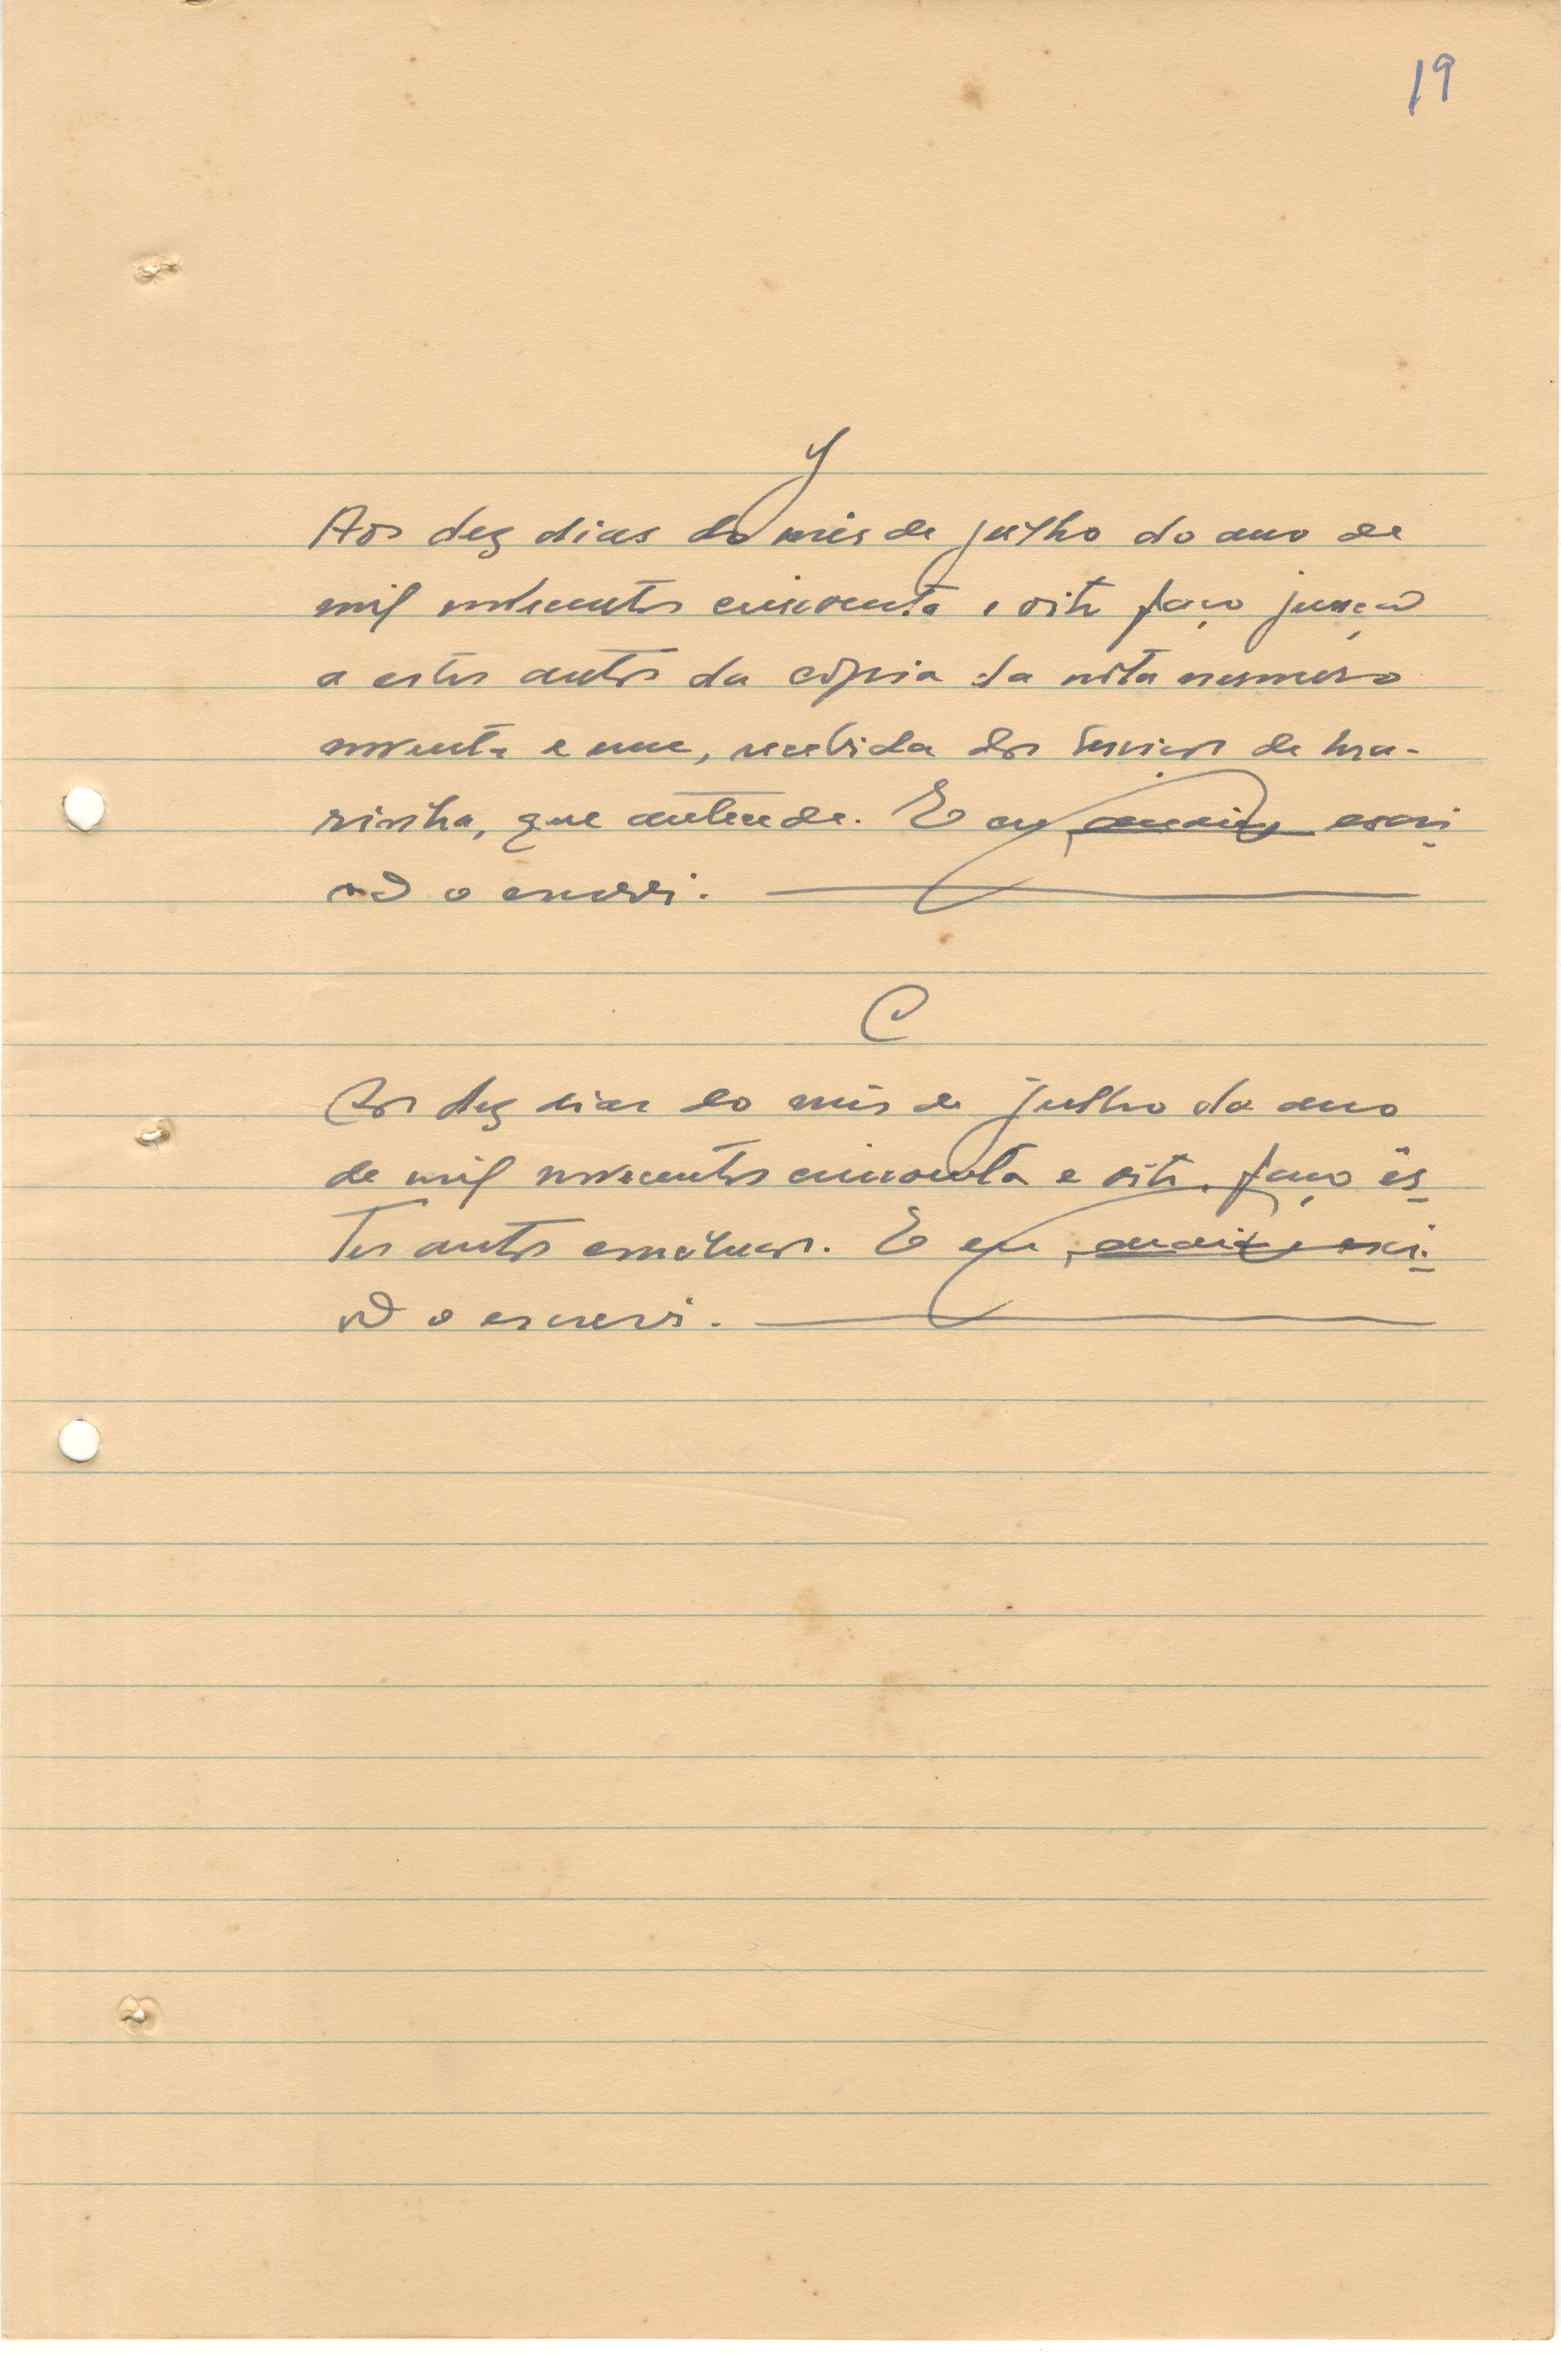 19
J
Aos dez dias do mês de julho do ano de
mil novecentos cincoenta e oito faço junção
a estes autos da cópia da nota numero
noventa e um, recebida dos Serviços de Ma-
rinha, que antecede. E eu, escri
vão o escrevi.
C
Aos dez dias do mês de julho do ano
de mil novecentos cincoenta e oito, faço ês
tes autos conclusos. E eu, escri
vão o escrevi.